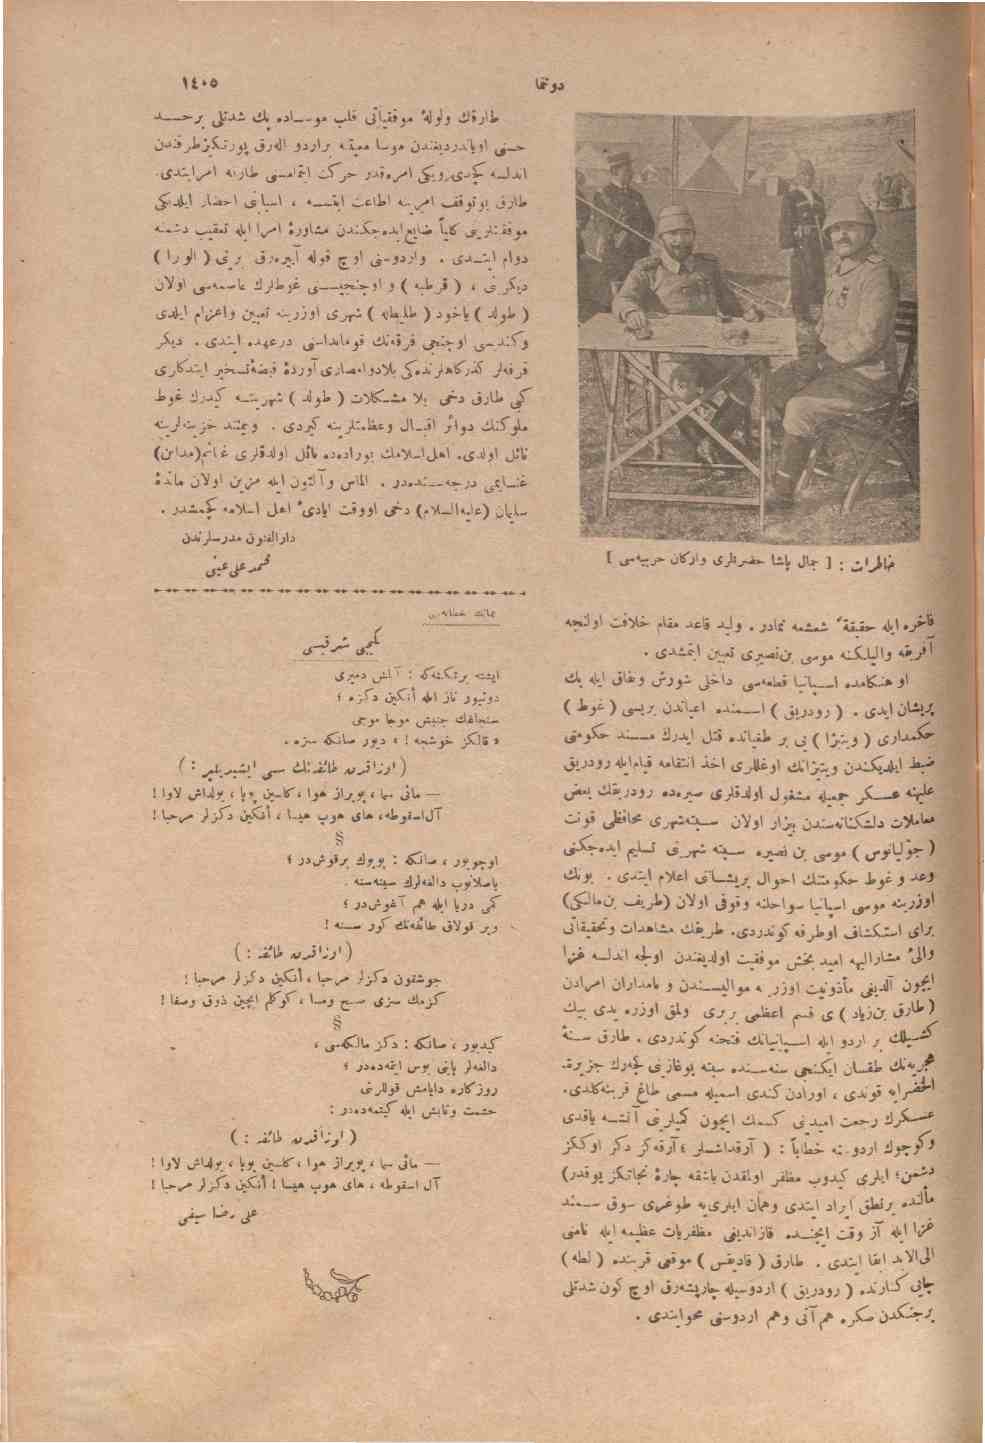 دوننما
١٤٠٥
خاطرات : [ جمال پاشا حضرتلری وارکان حربیه‌سی ]
فاخره ایله حقیقةً شعشعه نمادر . ولید قاعد مقام خلافت اولنجه
آفریقه والیلکنه موسی بن‌نصیری تعیین ایتمشدی .
او هنکامده اسپانیا قطعه‌سی داخلی شورش ونفاق ایله پك
پریشان ایدی . ( رودریق ) اسمنده اعیاندن بریسی ( غوط )
حکمداری ( ویتیزا ) یی بر طغیانده قتل ایدرك مسند حکومتی
ضبط ایلدیکندن ویتیزانك اوغللری اخذ انتقامه قیام‌ایله رودریق
علیهنه عسکر جمعیله مشغول اولدقلری صیره‌ده رودریقك بعض
معاملات دلشکنانه‌سندن بیزار اولان سبته‌شهری محافظی قونت
( جولیانوس ) موسی بن نصیره سبته شهرنی تسلیم ایده‌جکنی
وعد و غوط حکومتنك احوال پریشانی اعلام ایتدی . بونك
اوزرینه موسی اسپانیا سواحلنه وقوفی اولان (طریف بن‌مالکی)
برای استکشاف اوطرفه کوندردی. طریفك مشاهدات وتحقیقاتی
والیٔ مشارالیهه امید بخش موفقیت اولدیغندن اولجه اندلسه غزا
ایچون آلدیغی مأذونیت اوزرینه موالیسندن و نامداران امرادن
(طارق بن‌زیاد ) ی قسم اعظمی بربری ولمق اوزره یدی بیك
کشیلك بر اردو ایله اسپانیانك فتحنه کوندردی . طارق سنهٔ
هجریه‌نك طقسان ایکنجی سنه‌سنده سبته بوغازینی کچه‌رك جزیرة.
الخضرایه قوندی ، اورادن کندی اسمیله مسمی طاغ قربنه‌کلدی.
عسکرك رجعت امیدینی کسمك ایچون کمیلرینی آتشه یاقدی
وکوچوك اردوسنه خطاباً : ( آرقداشلر ؛ آرقه‌کز دکز اوککز
دشمن؛ ایلری کیدوب مظفر اولمقدن باشقه چارهٔ نجاتکز یوقدر)
مألنده برنطق ایراد ایتدی وهمان ایلری‌یه طوغری سوق سمند
غزا ایله آز وقت ایچنده قازاندیغی مظفریات عظیمه ایله نامنی
الی‌الابد ابقا ایتدی . طارق ( قادیقس ) موقعی قربنده ( لطه )
چایی کنارنده ( رودریق ) اردوسیله چارپیشه‌رق اوچ کون شدتلی
برجنکدن‌صکره هم‌آنی وهم اردوسنی محوایتدی .
طارقك ولولهٔ موفقیاتی قلب موساده پك شدتلی برحسد
حسی اویاندردیغندن موسا معیتنه براردو آله‌رق
اندلسه کچدی‌ویکی امره‌قدر حرکت ایتمامسنی طارقه امرایتدی.
طارق بوتوقف امرینه اطاعت ایتسه ، اسبابی احضار ایلدیکی
موفقیتلرینی کلیاً ضایع‌ایده‌جکندن مشاورهٔ امرا ایله تعقیب دشمنه
دوام ایتدی . واردوسنی اوچ قوله آییره‌رق برینی ( الورا )
دیکرینی ، ( قرطبه ) و اوچنجیسنی غوطلرك عاصمه‌سی اولان
( طولد ) یاخود ( طلیطله ) شهری اوزرینه تعیین واعزام ایلدی
وکندیسی اوچنجی فرقه‌نك قومانداسنی درعهده ایتدی . دیکر
فرقه‌لر کذرکاهلرنده‌کی بلادوامصاری آوردهٔ قبضهٔ‌تسخیر ایتدکلری
کبی طارق دخی بلا مشکلات ( طولد ) شهرینه کیدرك غوط
ملوکنك دوائر اقبال وعظمتلرینه کیردی . وبیمند خزینه‌لرینه
نائل اولدی. اهل‌اسلامك بوراده‌ده نائل اولدقلری غنائم(مداین)
غنایمی درجه‌سنده‌در . الماس وآلتون ایله مزین اولان مائدهٔ
سلیمان (علیه‌السلام) دخی اووقت ایادیٔ اهل اسلامه کچمشدر .
دارالفنون مدرسلرندن
محمدعلی‌عینی
یکیجی شرقیسی
ایشته برتکنه‌که : آتش دمیری
دوتیور ناز ایله آنکین دکزه ؛
سنجاغك جنبش موجا موجی
« قالکز خوشجه ! » دیور صانکه سزه .
( اوزاقدن طائفه‌نك سسی ایشیدیلیر : )
— مائی سما ، پویراز هوا ، کلسین پوپا ، یولداش لاوا !
آل‌اسقوطه، های هوپ هیسا ، آنکین دکزلر مرحبا !
§
اوچویور ، صانکه : بویوك برقوش‌در ؛
یاصلانوب دالغه‌لرك سینه‌سنه .
کمی دریا ایله هم آغوش‌در ؛
ویر قولاق طائفه‌نك کور سسنه !
( اوزاقدن طائفه : )
جوشقون دکزلر مرحبا ، آنکین دکزلر مرحبا !
کزمك سزی صبح ومسا ، کوکلم ایچین ذوق وصفا !
§
کیدیور ، صانکه : دکز مالکه‌سی ،
دالغه‌لر پاینی بوس ایتمه‌ده‌در ؛
روزکاره دایامش قوللرینی
حشمت وتابش ایله کیتمه‌ده‌در :
( اوزاقدن طائفه : )
— مائی سما ، پویراز هوا ، کلسین پوپا ، یولداش لاوا !
آل اسقوطه ، های هوپ هیسا ! آنکین دکزلر مرحبا !
علی رضا سیفی